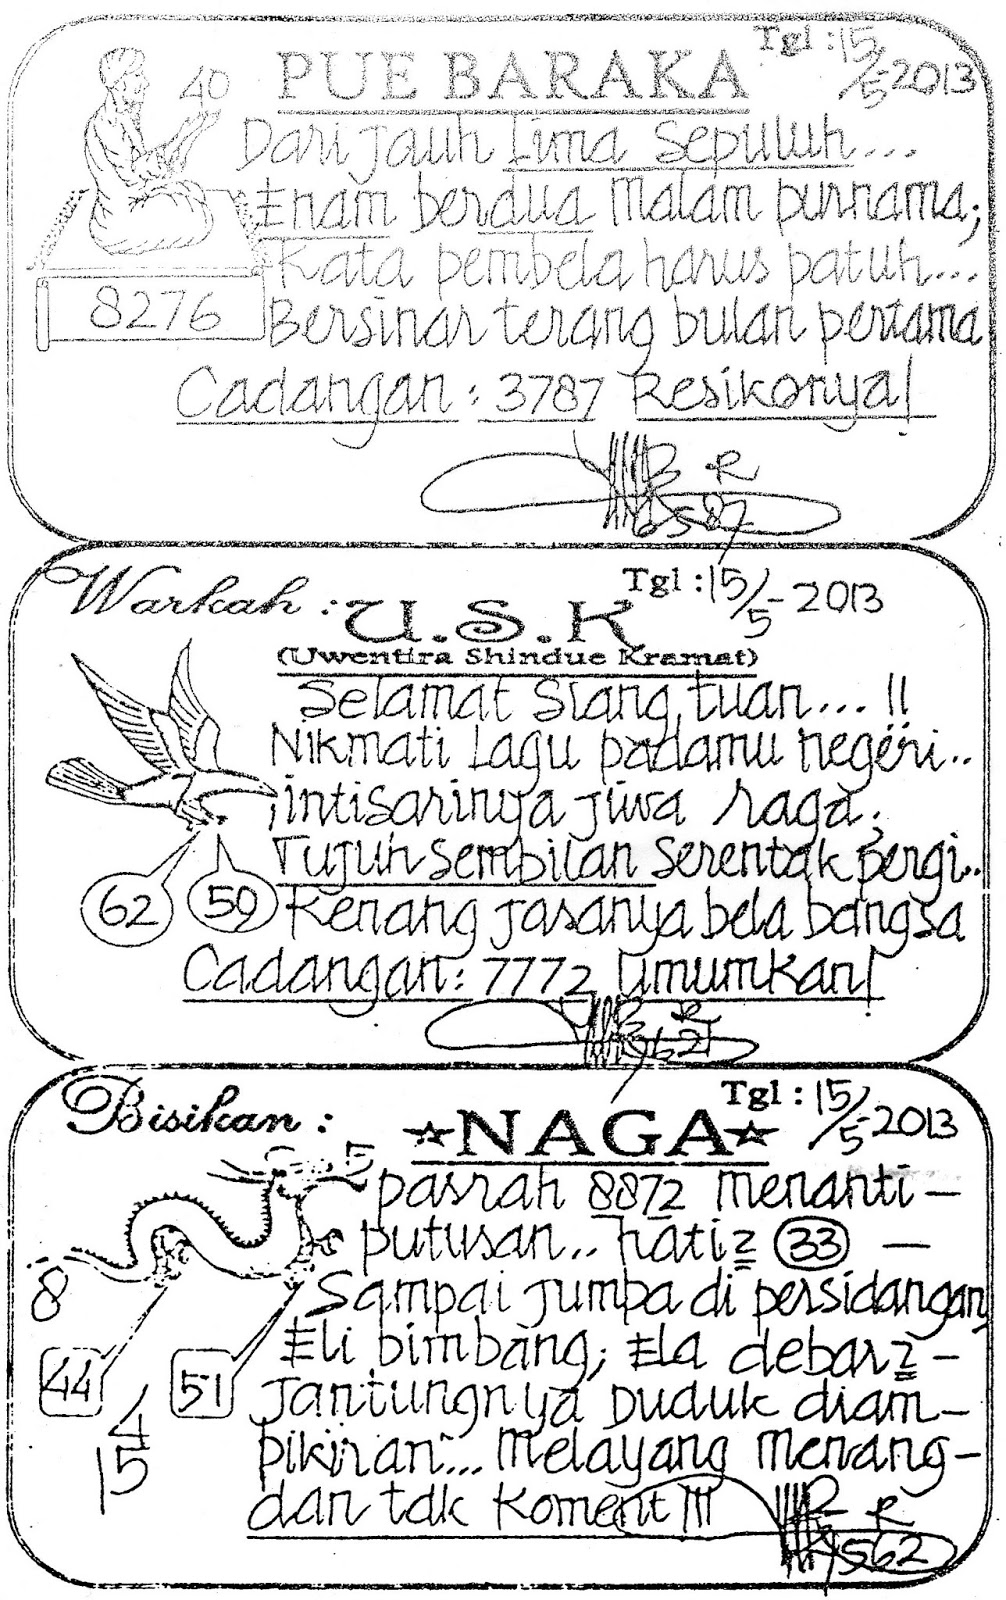 Tgl : 15/5-2013
PUE BARAKA
40
Dari jauh Lima Sepuluh...
Enam berdua malam purnama;
Kata pembela harus patuh...
8276
Bersinar terang bulan pertama
Cadangan : 3787 Resikonya!
R
6587
Warkah : U.S.K
Tgl : 15/5-2013
(Uwentira Shindue Kramat)
Selamat Siang tuan... !!
Nikmati Lagu padamu negeri..
intisarinya jiwa raga;
Tujuh Sembilan Serentak pergi..
62 59 Kenang jasanya bela bangsa
Cadangan : 7772 Umumkan!
R
9621
Bisikan : ☆NAGA☆
Tgl : 15/5-2013
5
pasrah 8872 menanti –
putusan.. hati2 33 –
8
Sampai jumpa di persidangan
Eli bimbang; Ela debar2 –
44 51 jantungnya Duduk diam –
4
15
pikiran... melayang menang –
dan tdk Koment !!!
R
7562